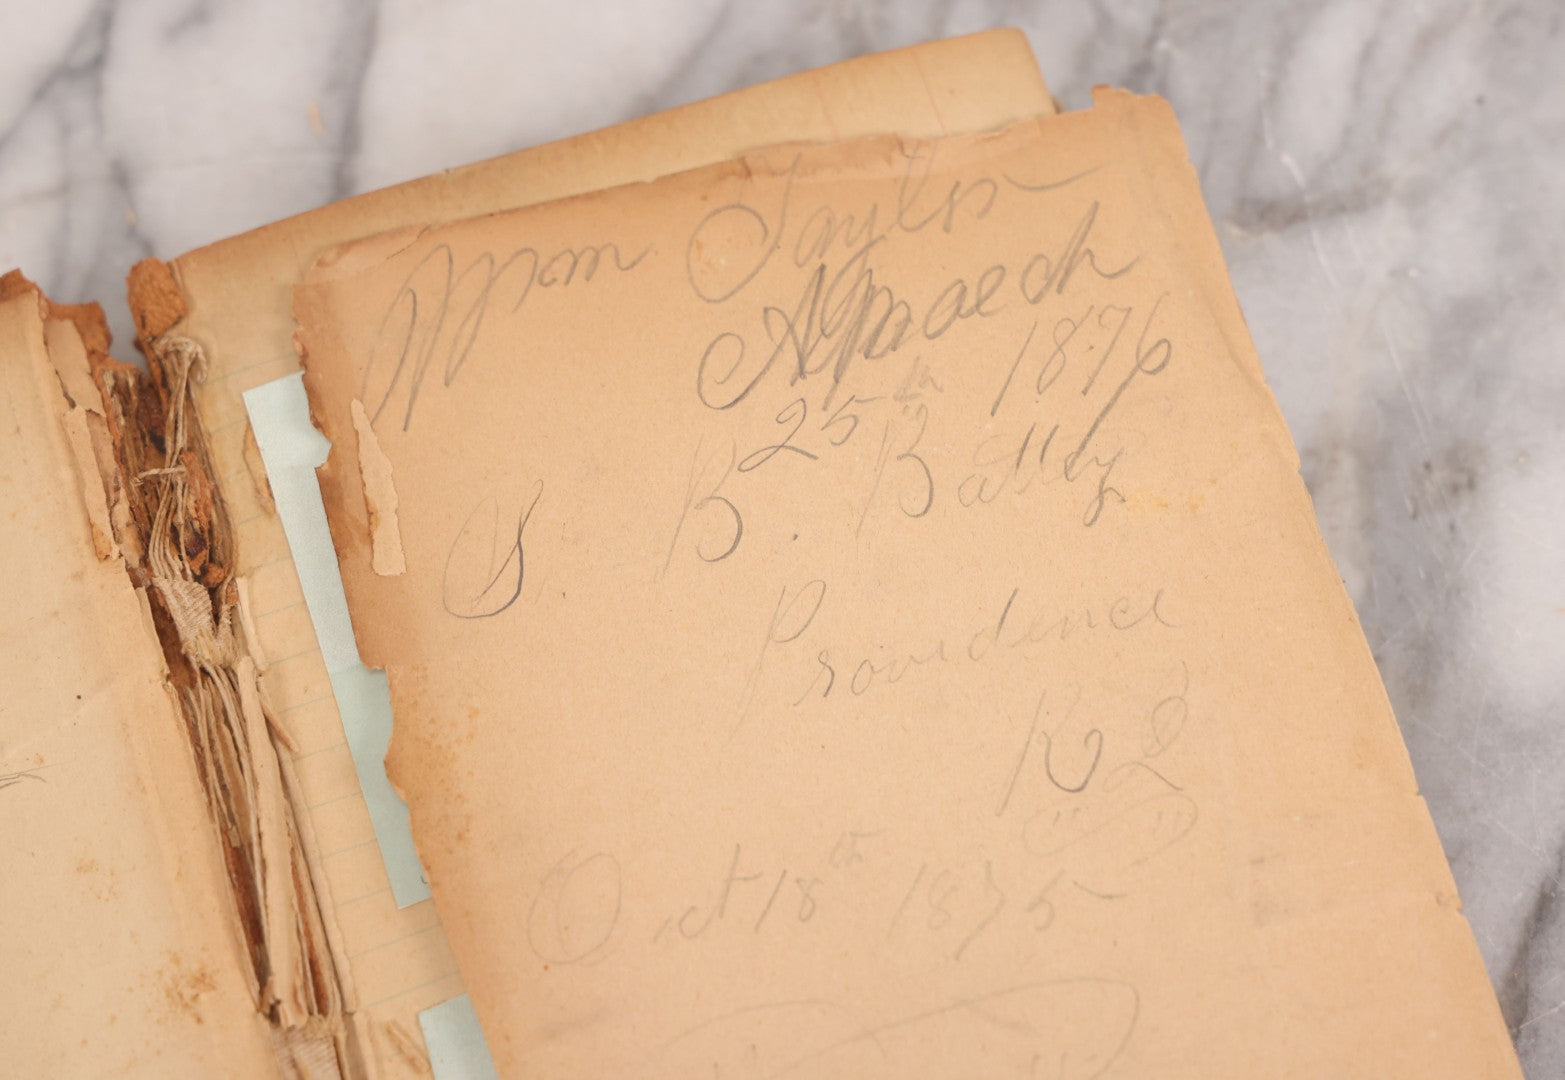 Wm Taylor
March
25th 1876
S. B. Batty
Providence
R I
Oct 18th 1875